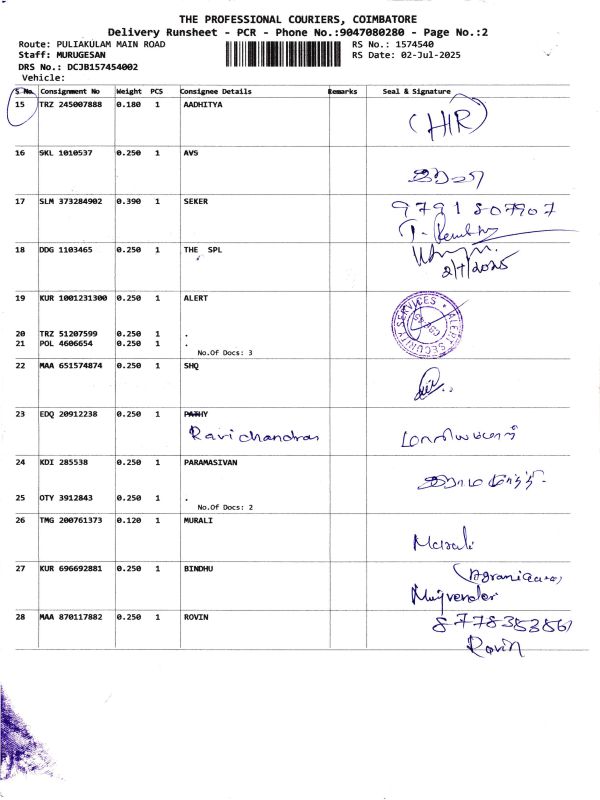 THE PROFESSIONAL COURIERS, COIMBATORE
Delivery Runsheet - PCR - Phone No.:9047080280 - Page No.:2
Route: PULIAKULAM MAIN ROAD RS No.: 1574540
Staff: MURUGESAN RS Date: 02-Jul-2025
DRS No.: DCJB157454002
Vehicle:
S No. Consignment No Weight PCS Consignee Details Remarks Seal & Signature
15 TRZ 245007888 0.180 1 AADHITYA
(HR)
16 SKL 1010537 0.250 1 AVS
17 SLM 373284902 0.390 1 SEKER 9791807907
18 DDG 1103465 0.250 1 THE SPL
2/7/2025
19 KUR 1001231300 0.250 1 ALERT
ALERT SECURITY SERVICES
20 TRZ 51207599 0.250 1 .
21 POL 4606654 0.250 1 .
No.Of Docs: 3
22 MAA 651574874 0.250 1 SHQ
23 EDQ 20912238 0.250 1 PATHY
Ravichandran
24 KDI 285538 0.250 1 PARAMASIVAN
25 OTY 3912843 0.250 1 .
No.Of Docs: 2
26 TMG 200761373 0.120 1 MURALI
Murali
27 KUR 696692881 0.250 1 BINDHU
28 MAA 870117882 0.250 1 ROVIN
Rovin